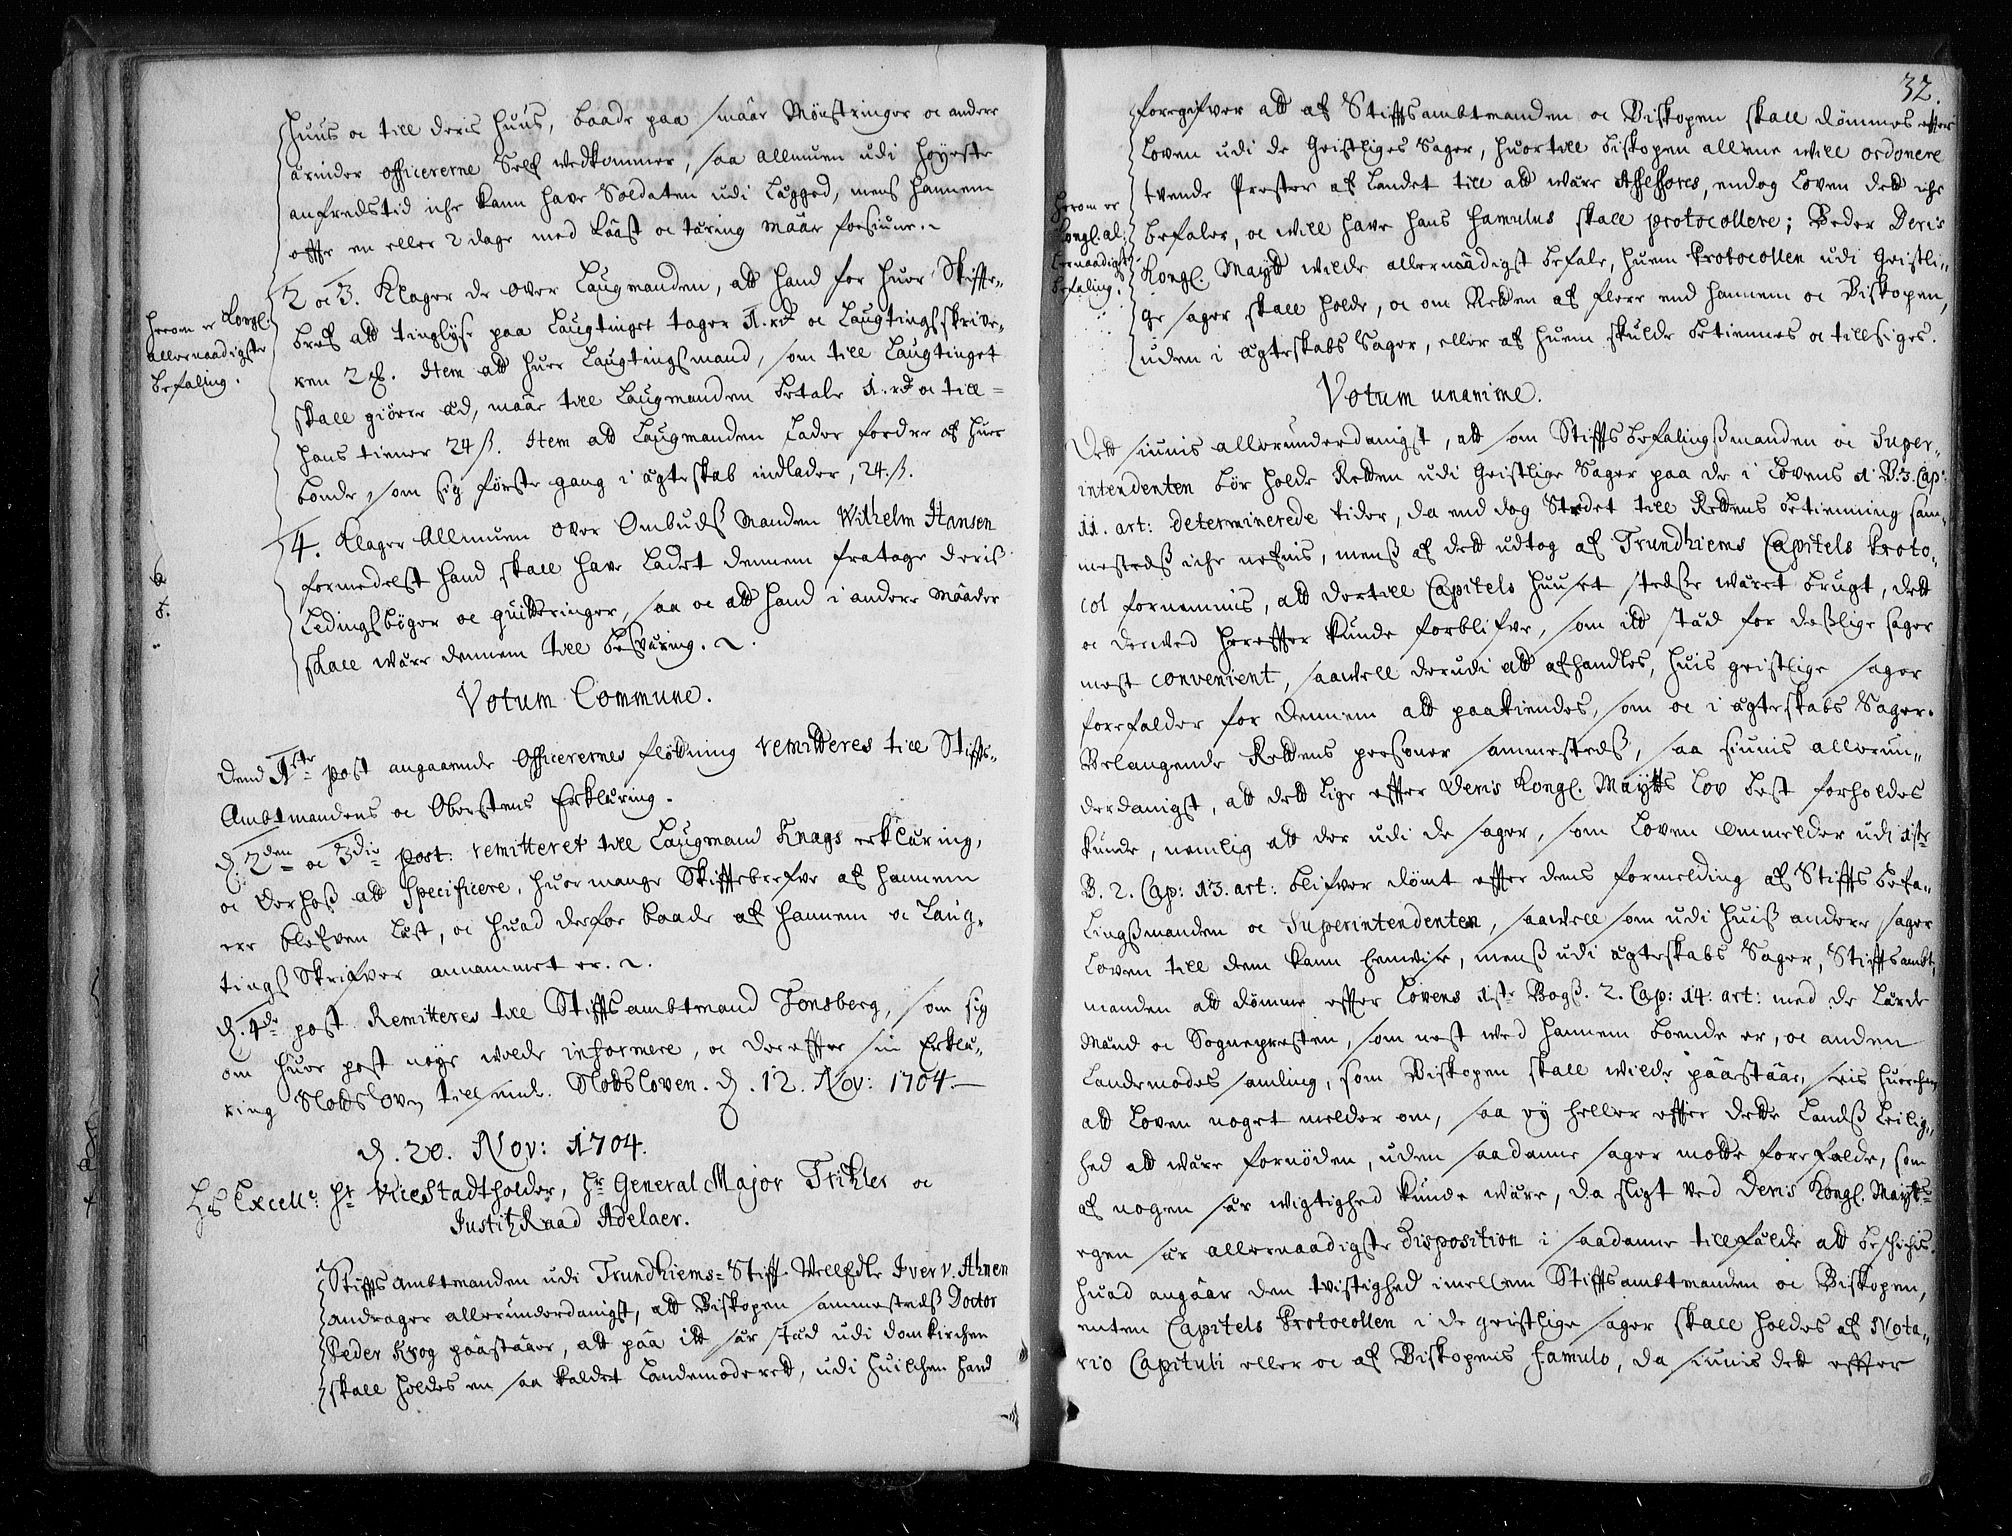 huus oc till deris huus, baade paa smaae Mönstringer oc andere
ärinder officererne Self vedkommer, saa allmuen udi höyeste
anfredstid iche kann have Soldaten udi Lägged, mens hannem
effter en eller 2 dage med Kaast oc täring maae forsiune.
2 oc 3. Klager de over Laugmanden, att hand for huer Skifte-
breff att tinglyse paa Laugtinget tager 1. rd. oc Laugtings skrive-
ren 2 ß. Item att huer Laugtingsmand, som till Laugtinget
skall giöre æd, maae till Laugmanden betale 1. rd oc till
hans tiener 24 ß. Item att Laugmanden lader fordre af huer
bonde, som sig förste gang i ägteskab indlader, 24. ß.
herom er Kongl.
allernaadigste
befaling.
4. Klager Allmuen over Ombudsmanden Wilhelm Hansen
formedelst hand skall have ladet dennem fratage deris
Ledingsbøger oc quitteringer, saa oc att hand i andere Maader
skall være dennem till besværing.
Votum Commune.
Dend 1ste post angaaende Officerernes flötning remitteres till Stiffts-
Ambtmandens oc Oberstens Erklæring.
d. 2den oc 3die post. remitteret till Laugmand Knags erklæring,
oc derhoß att Specificere, huor mange Skifftebrefve af hannem
ere blefven læst, oc huad derfor baade af hannem oc Laug-
tings Skrifver annammet er.
d. 4de post Remitteres till Stiffts ambtmand Tonsberg, som sig
om huer post nøye wilde informere, oc dereffter sin Erklæ-
ring Slotsloven tillsende. Slotsloven. d. 12. Nov: 1704.
d. 20. Nov: 1704.
Hs Excell: Hr Vice Stadtholder, Hr General Major Trichler oc
Justitz Raad Adelaer.
Stiffts ambtmanden udi Trundhiems-Stifft VellEdle Iver v. Ahnen
andrager allerunderdanigst, att Biskopen sammesteds Doctor
Peder Krog paastaaer, att paa itt sær stæd udi domkirchen
skall holdes en saa kaldet Landemoderett, udi huilchen hand
32.
foregifver att af Stiffts ambtmanden oc Biskopen skall dömmes effter
Loven udi de Geistliges Sager, huortill biskopen allene will ordonere
tvende Prester af Landet till att være Assessores, endog Loven dett iche
befaler, oc will have hans famulus skall protocollere; Beder Deris
Kongl. Maytt wilde allernådigst befale, huem Protocollen udi Geistli-
ge sager skall holde, oc om Retten af flere end hannem oc Biskopen,
uden i ägteskabs Sager, eller af huem skulde betiennes oc tillsiges.
herom er
Kongl. al-
lernaadigste
befaling.
Votum unanime.
Dett siunis allerunderdanigst, att som Stiffts befalingßmanden oc Super-
intendenten bör holde Retten udi Geistlige Sager paa de i Lovens 1 B. 3. Cap:
11. art: determinerede tider, da end dog Stedet till Rettens betienning sam-
mesteds iche nefnis, menß af dett udtog af Trundhiems Capitels Proto-
col fornemmis, att dertill Capitels huuset stedse wäret brugt, dett
oc derved hereffter kunde forblifve, som itt stæd for deslige sager
mest convenient, saavell derudi att afhandles, huis geistlige sager
forefalder for dennem att paakiendes, som oc i ägteskabs Sager.
Belangende Rettens personer sammesteds, saa siunis allerun-
derdanigst, att dett lige effter Deris Kongl. Maytts Lov best forholdes
kunde, nemlig att der udi de sager, som Loven ommelder udi 1ste
B. 2. Cap: 13. art: blifver dömt effter dens formelding af Stiffts befa-
lingßmanden oc Superintendenten, saavell som udi huis andere sager
Loven till dem kann henvise, menß udi ägteskabs Sager, Stiffts ambt-
manden att dömme effter Lovens 1ste Bogs. 2. Cap: 14. art: med de Lærde
Mænd oc Sognepresten, som nest ved hannem boende er, oc anden
Landemodes samling, som Biskopen skall wilde paastaae,
att Loven noget melder om, saa ey heller effter dette Lands Leilig-
hed att være fornöden, uden saadanne sager motte forefalde, som
af nogen sær wigtighed kunde være, da sligt ved Deris Kongl. Maytts
egen sær allernaadigste disposition i saadanne tillfælde att beskichis.
huad angaar den tvistighed imellem Stiffts ambtmanden oc Biskopen,
enten Capitels Protocollen i de geistlige sager skall holdes af Nota-
rio Capituli eller oc af Biskopens famulo, da siunis dett effter